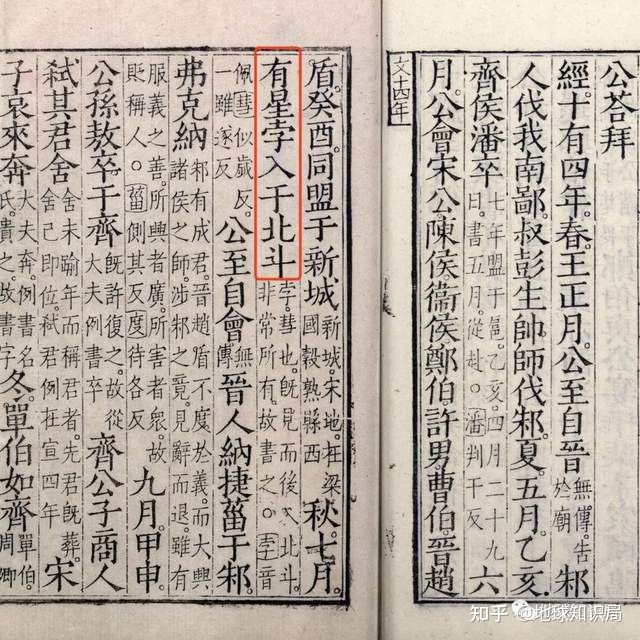 公荅拜
經十有四年。春。王正月。公至自晉無傳。告於廟邾
人伐我南鄙。叔彭生帥師伐邾。夏。五月。乙亥。
齊侯潘卒七年盟于扈。乙亥。四月二十九日。書五月。從赴。潘判干反六
月。公會宋公。陳侯。衞侯。鄭伯。許男。曹伯。晉趙
文十四年
盾。癸酉。同盟于新城新城。宋地。在梁國穀熟縣西秋。七月。
有星孛入于北斗孛。彗也。既見而後入北斗。非常所有。故書之。孛音
佩。彗似歲反。一雖遂反公至自會無傳晉人納捷菑于邾。
弗克納邾有成君。晉趙盾不度於義。而大興諸侯之師。涉邾之竟。見辭而退。雖有
服義之善。所興者廣。所害者衆。故貶稱人。菑側其反。度待各反九月。甲申。
公孫敖卒于齊既許復之。故從大夫例書卒齊公子商人
弒其君舍舍未踰年而稱君者。先君既葬。舍已即位。弒君例在宣四年宋
子哀來奔大夫奔。例書名氏。貴之。故書字冬。單伯如齊單伯。周卿
知乎 @地球知识局